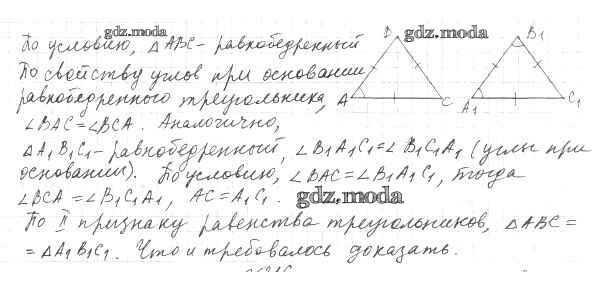 gdz.moda
По условию, △ABC - равнобедренный
По свойству углов при основании
равнобедренного треугольника,
∠BAC=∠BCA. Аналогично,
△A1B1C1-равнобедренный, ∠B1A1C1=∠B1C1A1 (углы при
основании). По условию, ∠BAC=∠B1A1C1, тогда
∠BCA =∠B1C1A1, AC=A1C1.
gdz.moda
По II признаку равенства треугольников, △ABC=
=△A1B1C1. Что и требовалось доказать.
B
gdz.moda
B1
A
C
A1
C1